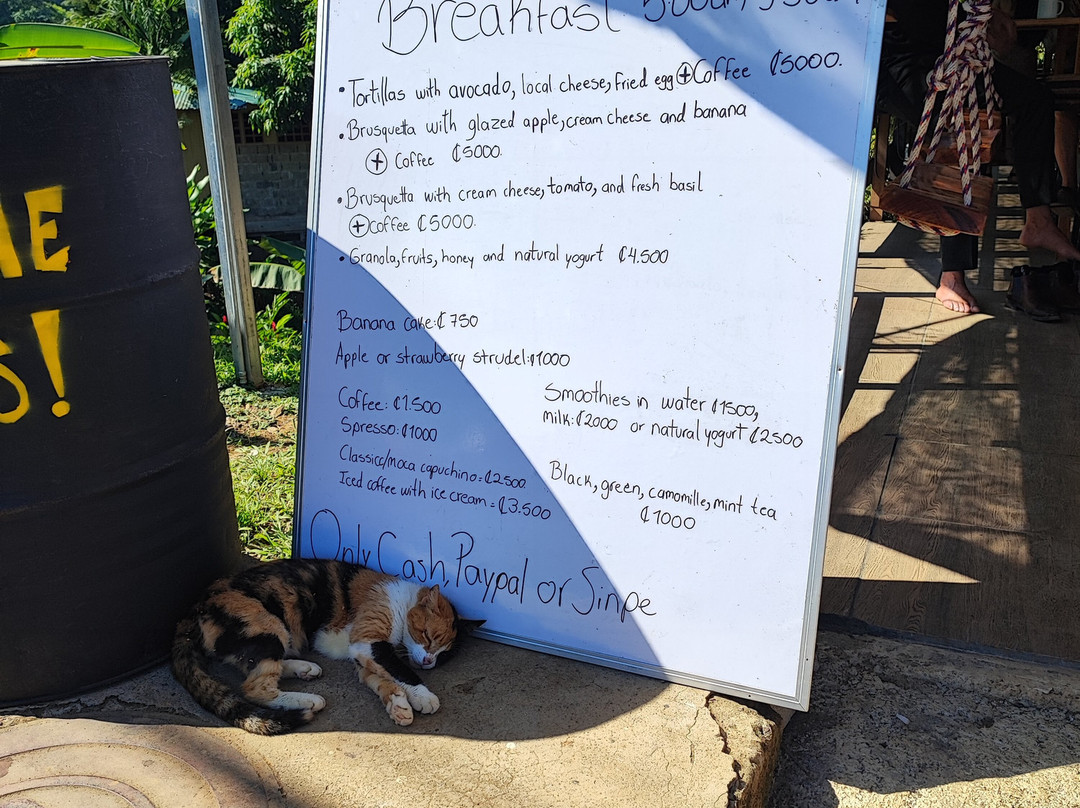 Breakfast
• Tortillas with avocado, local cheese, fried egg + Coffee ₡5000.
• Brusquetta with glazed apple, cream cheese and banana
+ Coffee ₡5000.
• Brusquetta with cream cheese, tomato, and fresh basil
+ coffee ₡5000.
• Granola, fruits, honey and natural yogurt ₡4.500
Banana cake: ₡750
Apple or strawberry strudel: ₡1000
Coffee: ₡1.500
Spresso: ₡1000
Classicc/moca capuchino = ₡2500
Iced coffee with ice cream = ₡3.500
Smoothies in water ₡1500,
milk: ₡2000 or natural yogurt ₡2500
Black, green, camomille, mint tea
₡1000
Only Cash, Paypal or Sinpe
ME
S!